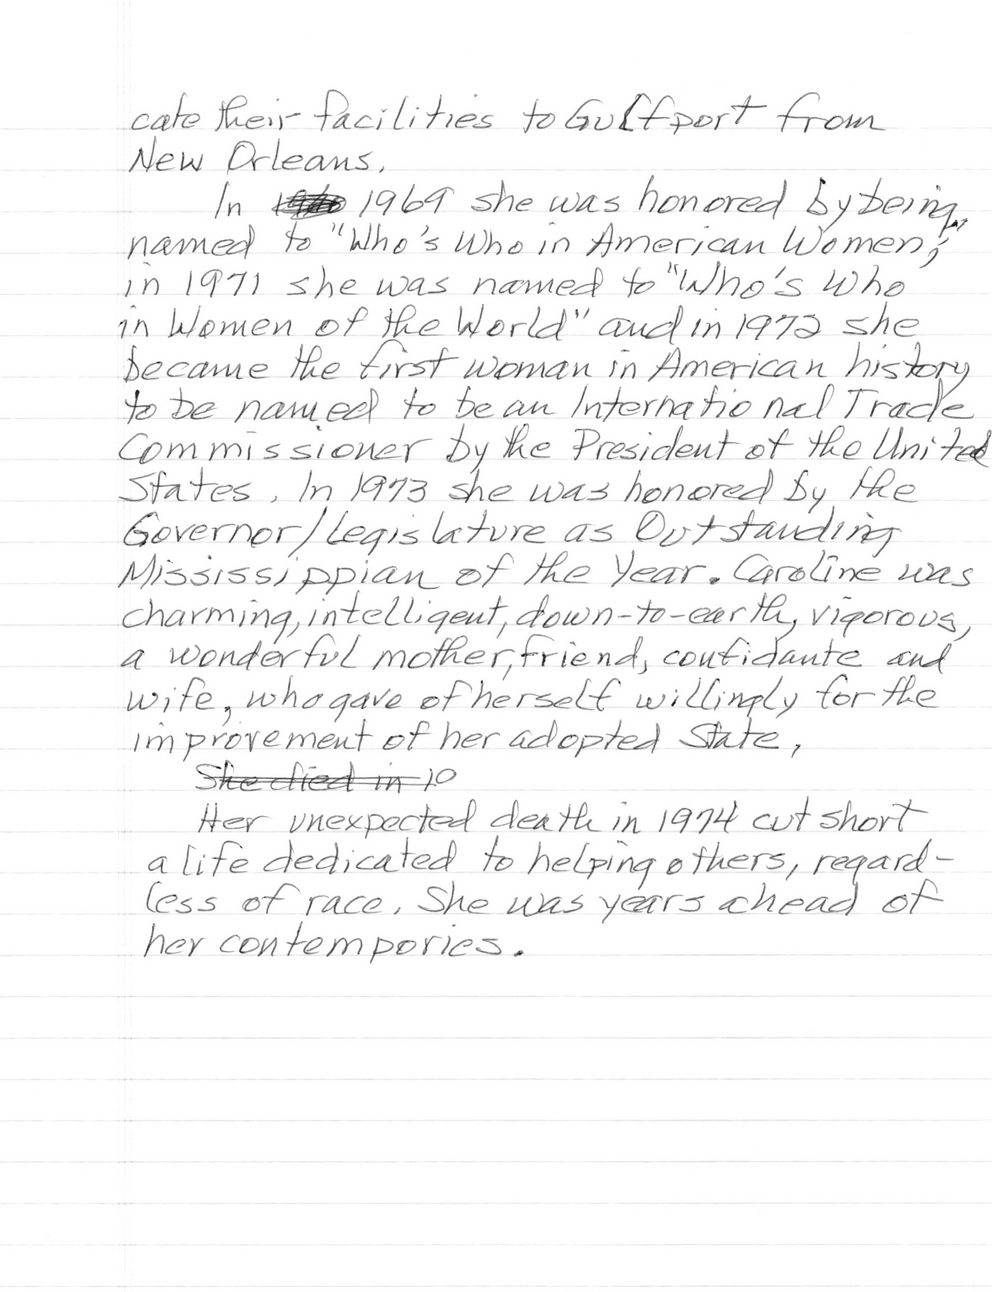 cate their facilities to Gulfport from
New Orleans.
In 1969 she was honored by being
named to "Who's Who in American Women;"
in 1971 she was named to "Who's Who
in Women of the World" and in 1972 she
became the first woman in American history
to be named to be an International Trade
Commissioner by the President of the United
States. In 1973 she was honored by the
Governor/Legislature as Outstanding
Mississippian of the Year. Caroline was
charming, intelligent, down-to-earth, vigorous,
a wonderful mother, friend, confidante and
wife, who gave of herself willingly for the
improvement of her adopted State,
She died in 10
Her unexpected death in 1974 cut short
a life dedicated to helping others, regard-
less of race. She was years ahead of
her contempories.